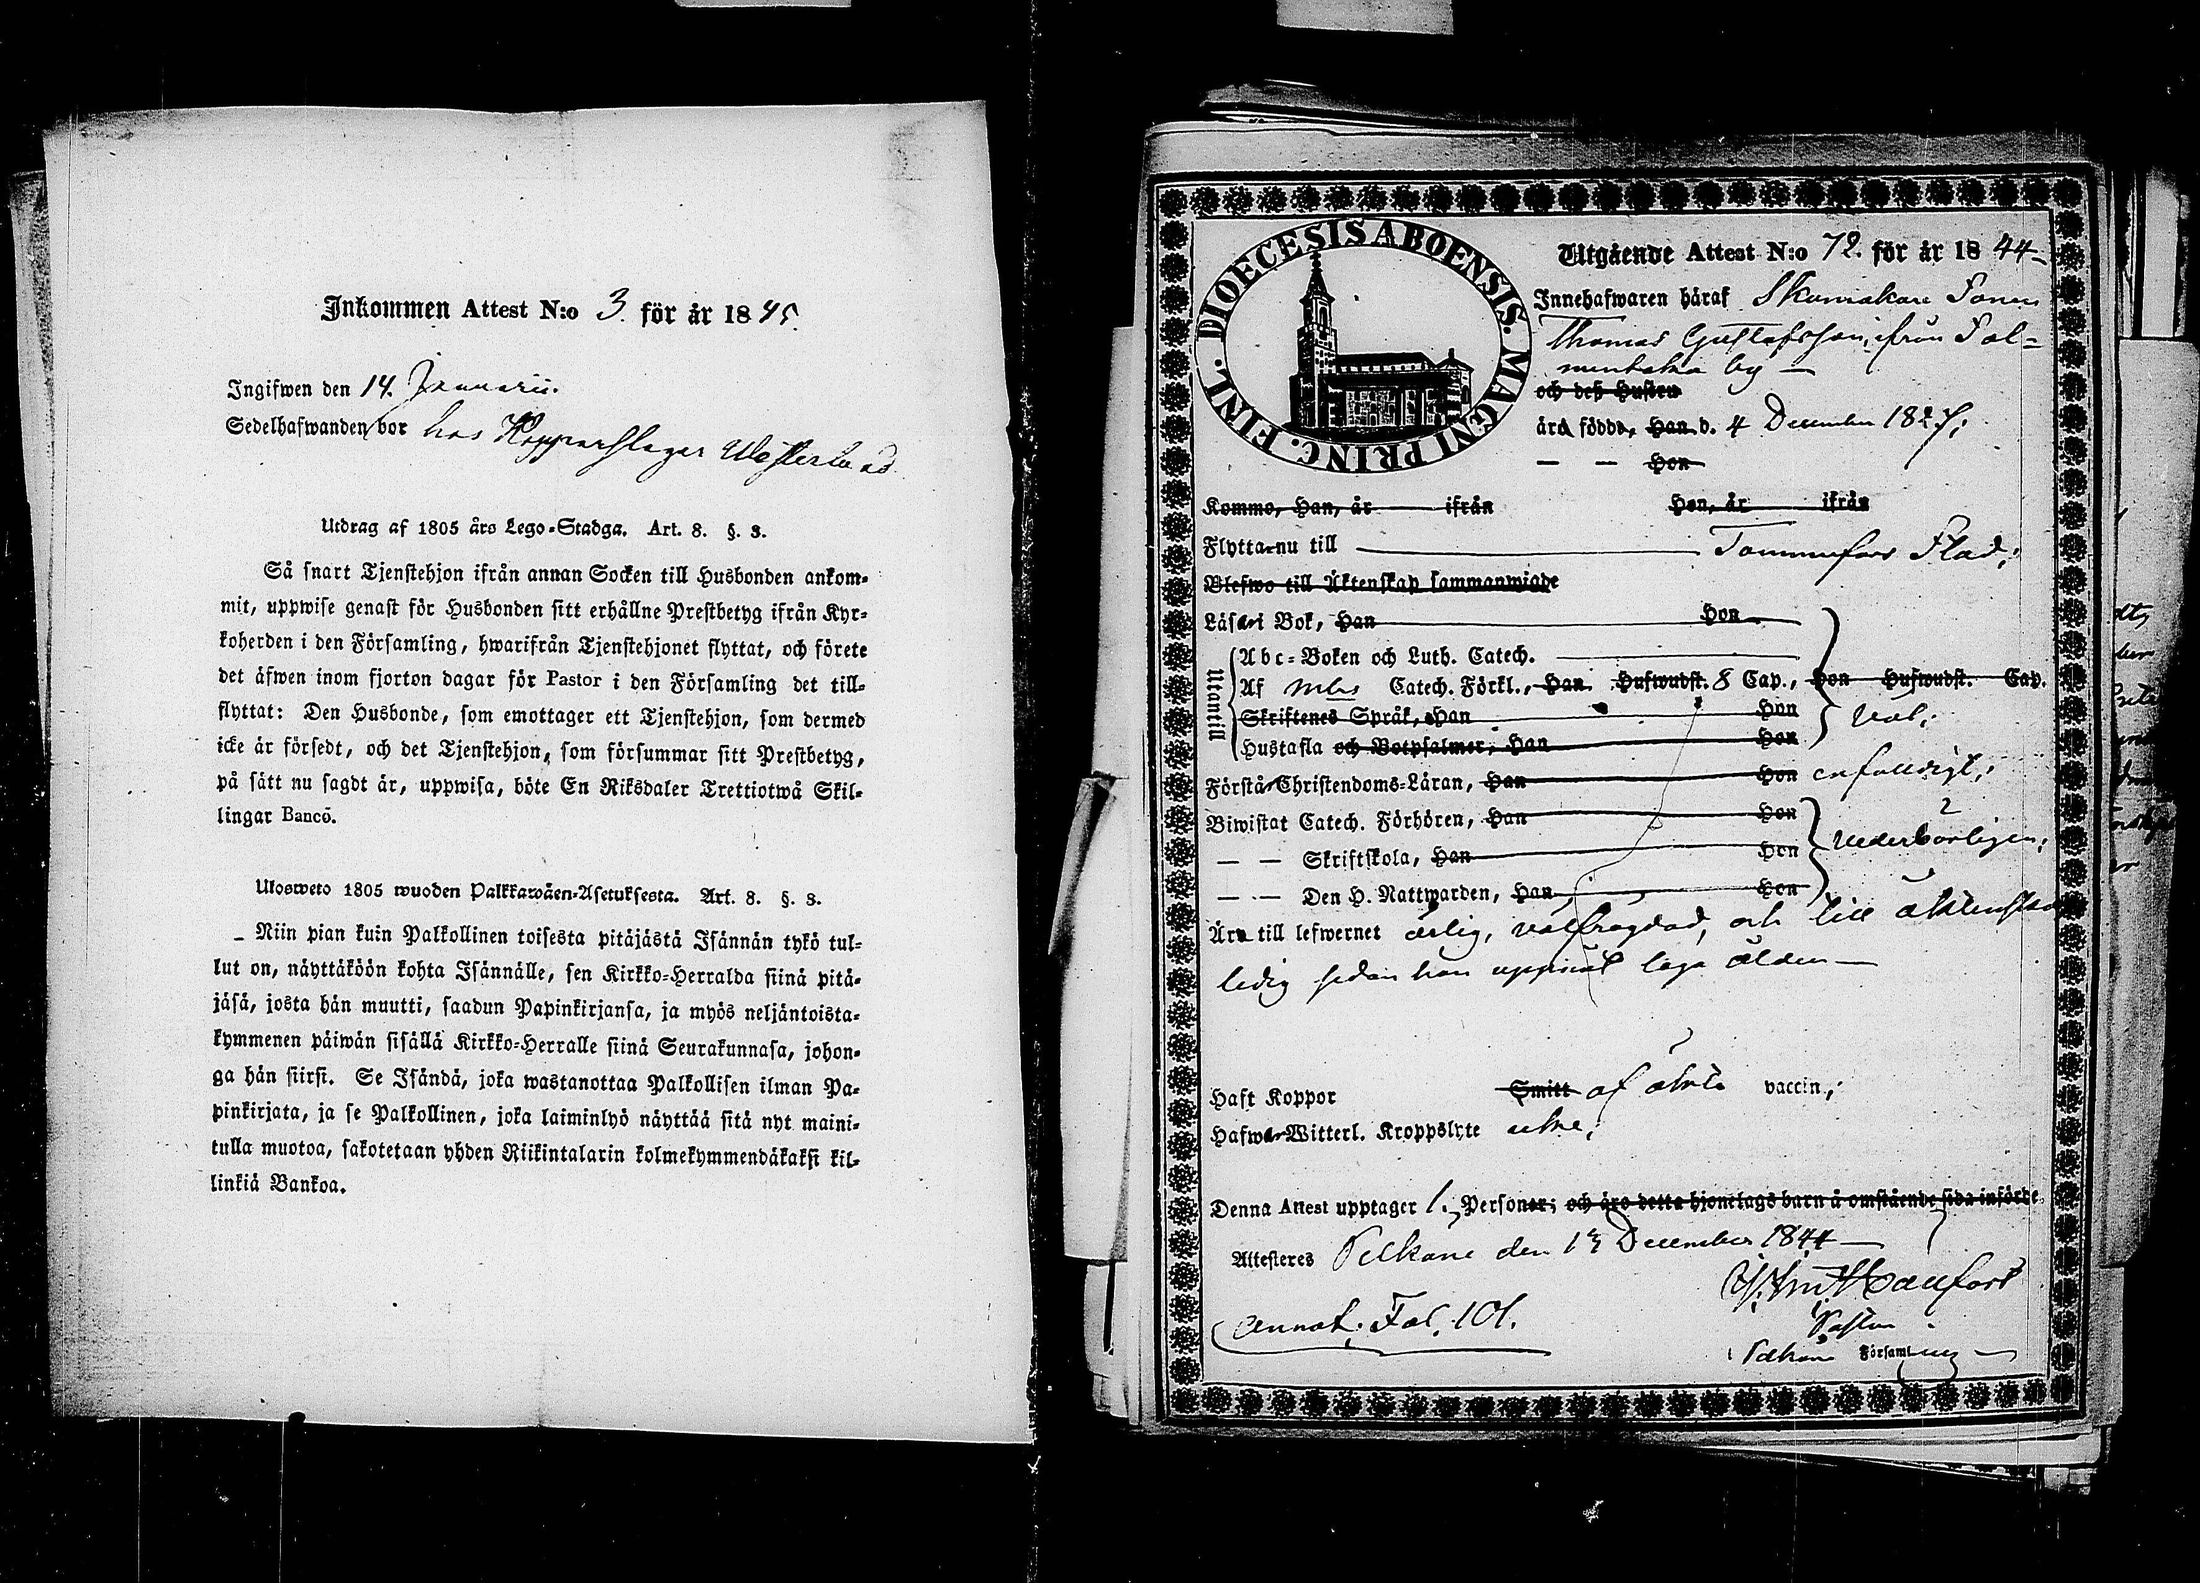 Inkommen Attest N:o 3. för år 1845.
Ingifwen den 14. Januarii.
Sedelhafwanden bor hos Kopparslagar Westerlund
Utdrag af 1805 års Lego-Stadga. Art. 8. §. 3.
Så snart Tjenstehjon ifrån annan Socken till Husbonden ankom-
mit, uppwise genast för Husbonden sitt erhållne Prestbetyg ifrån Kyr-
koherden i den Församling, hwarifrån Tjenstehjonet flyttat, och förete
det äfwen inom fjorton dagar för Pastor i den Församling det till-
flyttat: Den Husbonde, som emottager ett Tjenstehjon, som dermed
icke är försedt, och det Tjenstehjon, som försummar sitt Prestbetyg,
på sätt nu sagdt är, uppwisa, böte En Riksdaler Trettiotwå Skil-
lingar Banco.
Ulosweto 1805 wuoden Palkkawäen-Asetuksesta. Art. 8. §. 3.
Niin pian kuin Palkollinen toisesta pitäjästä Isännän tykö tul-
lut on, näyttäköön kohta Isännälle, sen Kirkko-Herralda siinä pitä-
jäsä, josta hän muutti, saadun Papinkirjansa, ja myös neljäntoista-
kymmenen päiwän sisällä Kirkko-Herralle siinä Seurakunnasa, johon-
ga hän siirsi. Se Isändä, joka wastanottaa Palkollisen ilman Pa-
pinkirjata, ja se Palkollinen, joka laiminlyö näyttää sitä nyt maini-
tulla muotoa, sakotetaan yhden Riikintalarin kolmekymmendäkaksi kil-
linkiä Bankoa.
DIOECESIS ABOENSIS. MAGNI PRINC. FINL.
Utgående Attest N:o 72. för år 1844
Innehafwaren häraf Skomakare Sonen
Thomas Gustafsson, ifrån Sal-
mentaka by
och deß Hustru
äro födde, Han d. 4 December 1827;
— — Hon
Kommo, Han, år ifrån Hon, år ifrån
Flytta nu till Tammerfors Stad;
Blefwo till Äktenskap sammanwigde
Läsa i Bok, Han Hon
Utantill
Abc-Boken och Luth. Catech.
Af Catech. Förkl., Han Hufwudst. 8 Cap., Hon Hufwudst. Cap.
Skriftenes Språk, Han Hon väl;
Hustafla och Botpsalmer, Han Hon
Förstå Christendoms-Läran, Han Hon enfaldigt;
Biwistat Catech. Förhören, Han Hon
— — Skriftskola, Han Hon vederbörligen;
— — Den H. Nattwarden, Han Hon
Äro till lefwernet ärlig, välfrägdad, och till äktenskap
ledig sedan han uppnåt laga ålder
Haft Koppor Smitt af äkta vaccin;
Hafwa Witterl. Kroppslyte icke;
Denna Attest upptager 1. Personer; och äro detta hjonelags barn å omstående sida införde.
Attesteres Pelkäne den 13 December 1844
Pastor
Annot. Fol. 101.
Pelkäne Församling